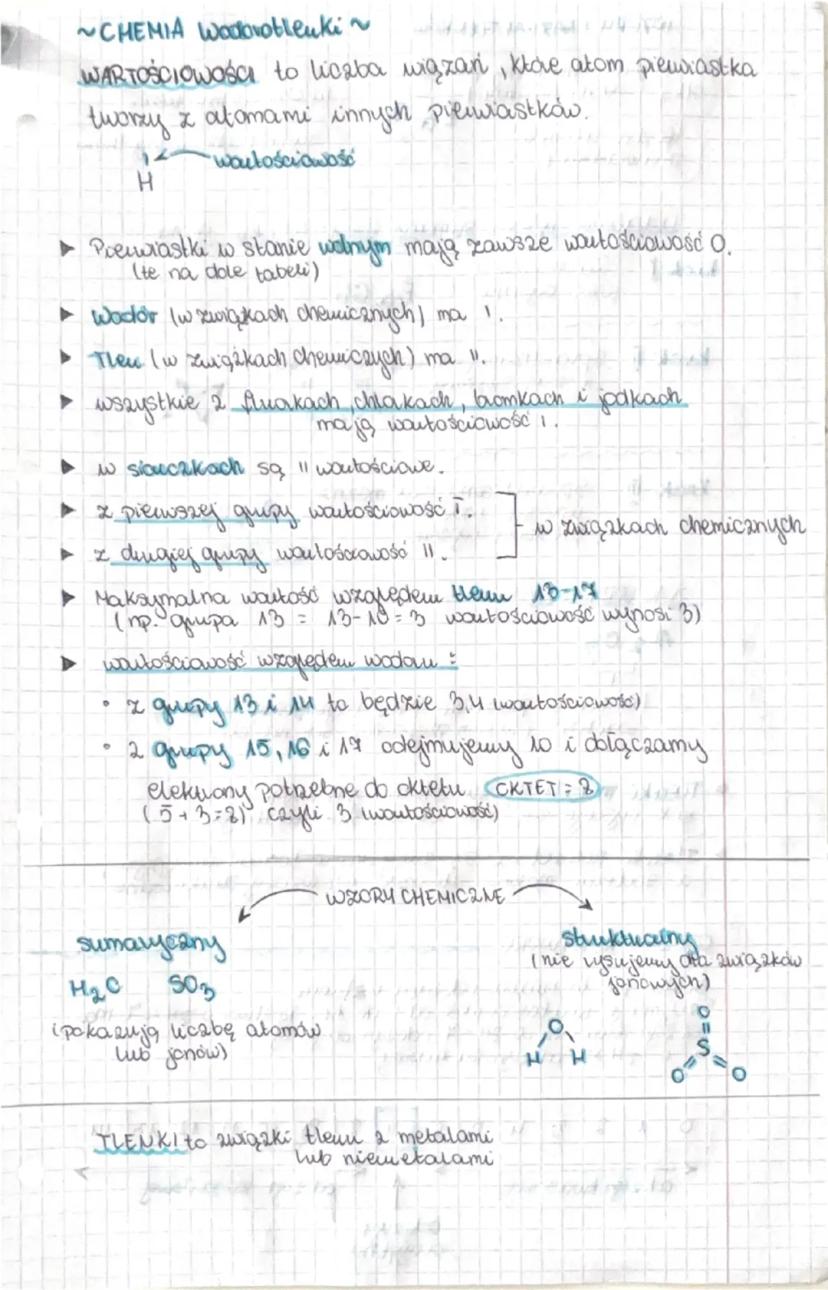 ~CHEMIA Wodorotlenki~
WARTOŚCIOWOŚCI to liczba wiązań, które atom pierwiastka
tworzy z atomami innych pierwiastków.
I wartościowość
H
▶ Pierwiastki w stanie wolnym mają zawsze wartościowość 0.
(te na dole tabeli)
▶ Wodór (w związkach chemicznych) ma I.
▶ Tlen (w związkach chemiczych) ma II.
▶ wszystkie z fluorkach, chlorkach, bromkach i jodkach
mają wartościowość I.
▶ w siarczkach są II wartościowe.
▶ z pierwszej grupy wartościowość I.
▶ z drugiej grupy wartościowość II.
w związkach chemicznych
▶ Maksymalna wartość względem tlenu 13-17
(np. grupa 13 = 13-10=3 wartościowość wynosi 3)
▶ wartościowość względem wodoru:
• z grupy 13 i 14 to będzie 3,4 (wartościowość)
• z grupy 15, 16 i 17 odejmujemy 10 i dołączamy
elektrony potrzebne do oktetu OKTET = 8
(5+3=8) czyli 3 (wartościowość)
WZORY CHEMICZNE
sumaryczny
H₂O SO₃
(pokazują liczbę atomów
lub jonów)
strukturalny
(nie rysujemy dla związków
jonowych)
O
H H
O
S
O O
TLENKI to związki tlenu z metalami
lub niemetalami